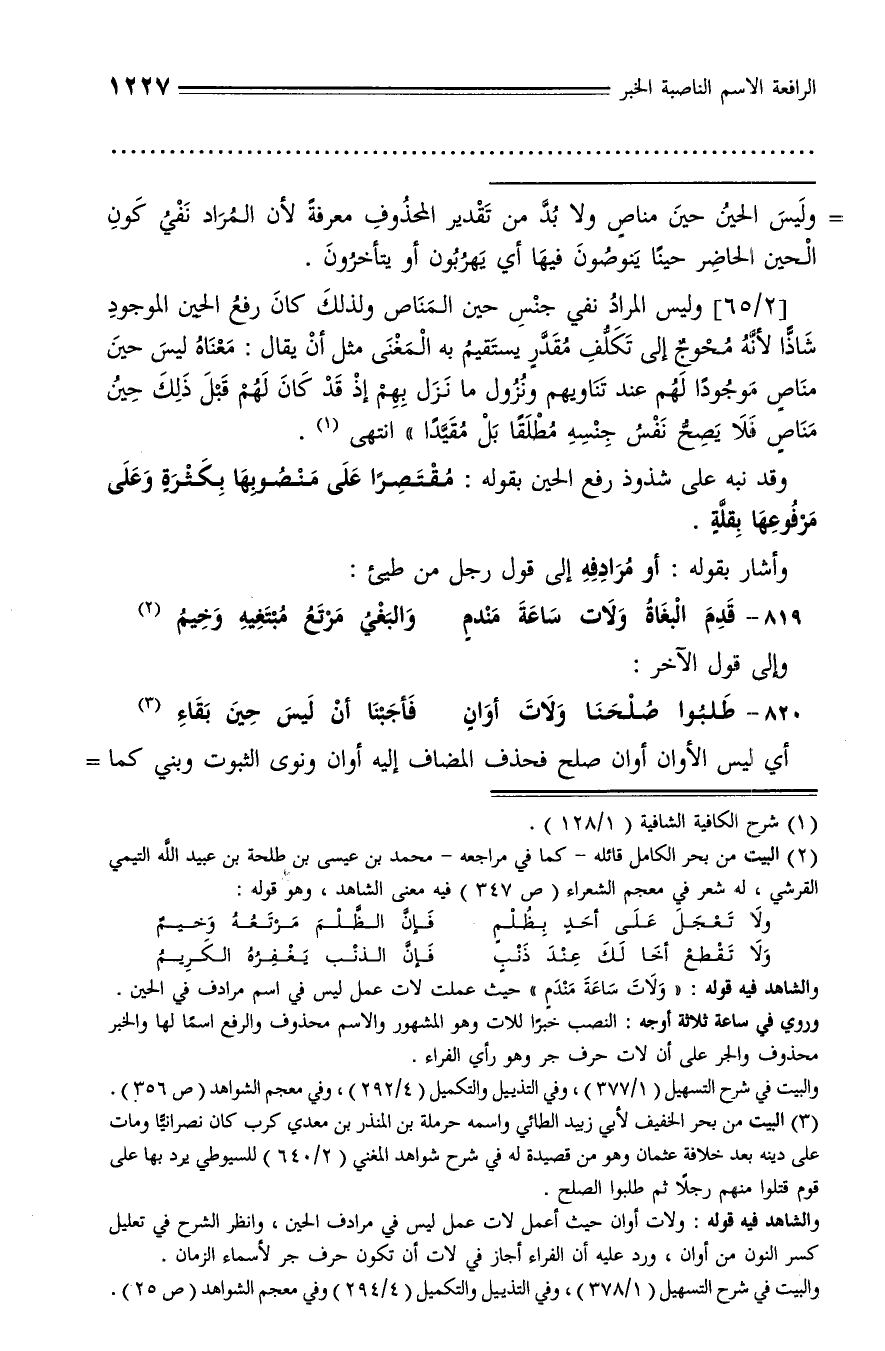 الرافعة الاسم الناصبة الخبر ١٢٢٧
................................................................
= ولَيسَ الحينُ حينَ مناصٍ ولا بُدَّ من تَقْدير المحذُوفِ معرفةً لأن المُرَاد نَفْيُ كَونِ
الْحين الحاضِر حينًا يَنوصُونَ فيهَا أي يَهرُبُون أو يتأخرُونَ .
[٦٥/٢] وليس المرادُ نفي جنْسِ حين المَنَاص ولذلكَ كانَ رفعُ الحين الموجودِ
شَاذًّا لأنَّهُ مُحْوجٌ إلى تَكَلُّفِ مُقَدَّرٍ يستَقيمُ به الْمَعْنَى مثل أنْ يقال : مَعْنَاهُ ليسَ حينَ
مناصٍ مَوجُودًا لَهُم عند تَنَاويهم ونُزُول ما نَزَل بِهِمْ إذْ قَدْ كَانَ لَهُمْ قَبْلَ ذَلِكَ حِينُ
مَنَاصٍ فَلَا يَصِحُّ نَفْسُ جِنْسِهِ مُطْلَقًا بَلْ مُقَيَّدًا » انتهى (١) .
وقد نبه على شذوذ رفع الحين بقوله : مُقْتَصِرًا عَلَى مَنْصُوبِهَا بِكَثْرَةٍ وَعَلَى
مَرْفُوعِهَا بِقلَّةٍ .
وأشار بقوله : أو مُرَادِفِهِ إلى قول رجل من طيئ :
٨١٩- قَدِمَ الْبغَاةُ وَلَات سَاعَةَ مَنْدمٍ وَالبَغْيُ مَرْتَعُ مُبْتَغِيهِ وَخِيمُ (٢)
وإلى قول الآخر :
٨٢٠- طَلبُوا صُلْحَنَا وَلَاتَ أوَانٍ فَأجَبْنَا أنْ لَيسَ حِينَ بَقَاءِ (٣)
أي ليس الأوان أوان صلح فحذف المضاف إليه أوان ونوى الثبوت وبني كما =
(١) شرح الكافية الشافية ( ١٢٨/١ ) .
(٢) البيت من بحر الكامل قائله - كما في مراجعه - محمد بن عيسى بن طلحة بن عبيد اللَّه التيمي
القرشي ، له شعر في معجم الشعراء ( ص ٣٤٧ ) فيه معنى الشاهد ، وهو قوله :
ولَا تَعْجَلَ عَلَى أحَدٍ بِظُلْمٍ فَإنَّ الظُّلْمَ مَرْتَعُهُ وَخيمُ
وَلَا تَقْطعْ أخَا لَكَ عِنْدَ ذَنْبٍ فَإنَّ الذنْب يَغْفِرُهُ الكَرِيمُ
والشاهد فيه قوله : « وَلَاتَ سَاعَةَ مَنْدَمٍ » حيث عملت لات عمل ليس في اسم مرادف في الحين .
وروي في ساعة ثلاثة أوجه : النصب خبرًا للات وهو المشهور والاسم محذوف والرفع اسمًا لها والخبر
محذوف والجر على أن لات حرف جر وهو رأي الفراء .
والبيت في شرح التسهيل ( ٣٧٧/١ ) ، وفي التذييل والتكميل ( ٢٩٢/٤ ) ، وفي معجم الشواهد ( ص ٣٥٦ ) .
(٣) البيت من بحر الخفيف لأبي زبيد الطائي واسمه حرملة بن المنذر بن معدي كرب كان نصرانيًّا ومات
على دينه بعد خلافة عثمان وهو من قصيدة له في شرح شواهد المغني ( ٦٤٠/٢ ) للسيوطي يرد بها على
قوم قتلوا منهم رجلًا ثم طلبوا الصلح .
والشاهد فيه قوله : ولات أوان حيث أعمل لات عمل ليس في مرادف الحين ، وانظر الشرح في تعليل
كسر النون من أوان ، ورد عليه أن الفراء أجاز في لات أن تكون حرف جر لأسماء الزمان .
والبيت في شرح التسهيل ( ٣٧٨/١ ) ، وفي التذييل والتكميل ( ٢٩٤/٤ ) وفي معجم الشواهد ( ص ٢٥ ) .